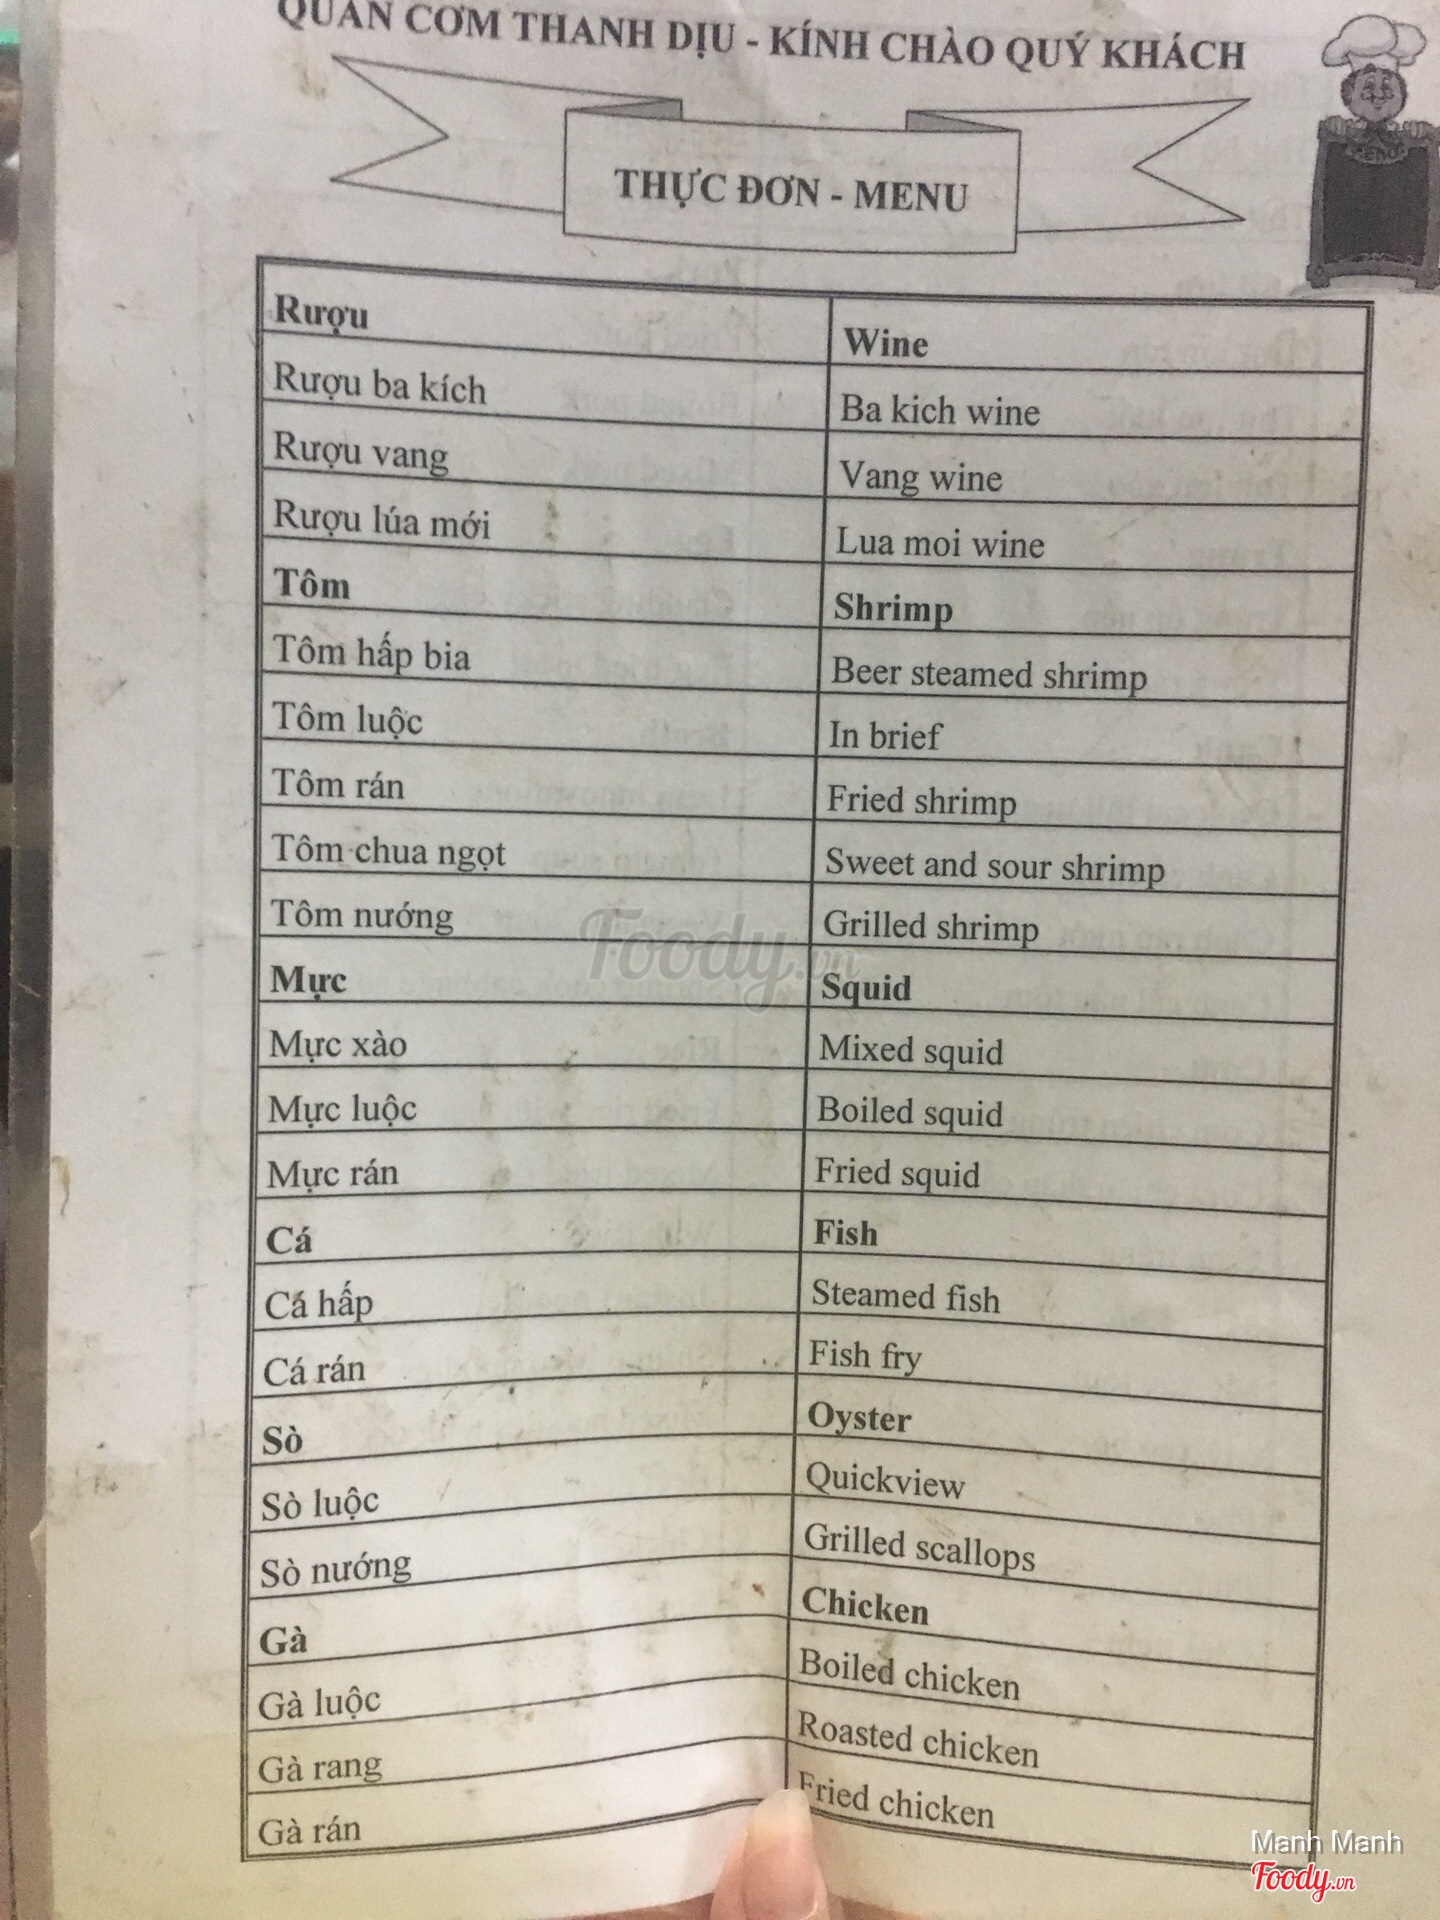 QUÁN CƠM THANH DỊU - KÍNH CHÀO QUÝ KHÁCH
MENU
THỰC ĐƠN - MENU
Rượu Wine
Rượu ba kích Ba kich wine
Rượu vang Vang wine
Rượu lúa mới Lua moi wine
Tôm Shrimp
Tôm hấp bia Beer steamed shrimp
Tôm luộc In brief
Tôm rán Fried shrimp
Tôm chua ngọt Sweet and sour shrimp
Tôm nướng Grilled shrimp
Foody.vn
Mực Squid
Mực xào Mixed squid
Mực luộc Boiled squid
Mực rán Fried squid
Cá Fish
Cá hấp Steamed fish
Cá rán Fish fry
Sò Oyster
Sò luộc Quickview
Sò nướng Grilled scallops
Gà Chicken
Gà luộc Boiled chicken
Gà rang Roasted chicken
Gà rán Fried chicken
Manh Manh
Foody.vn